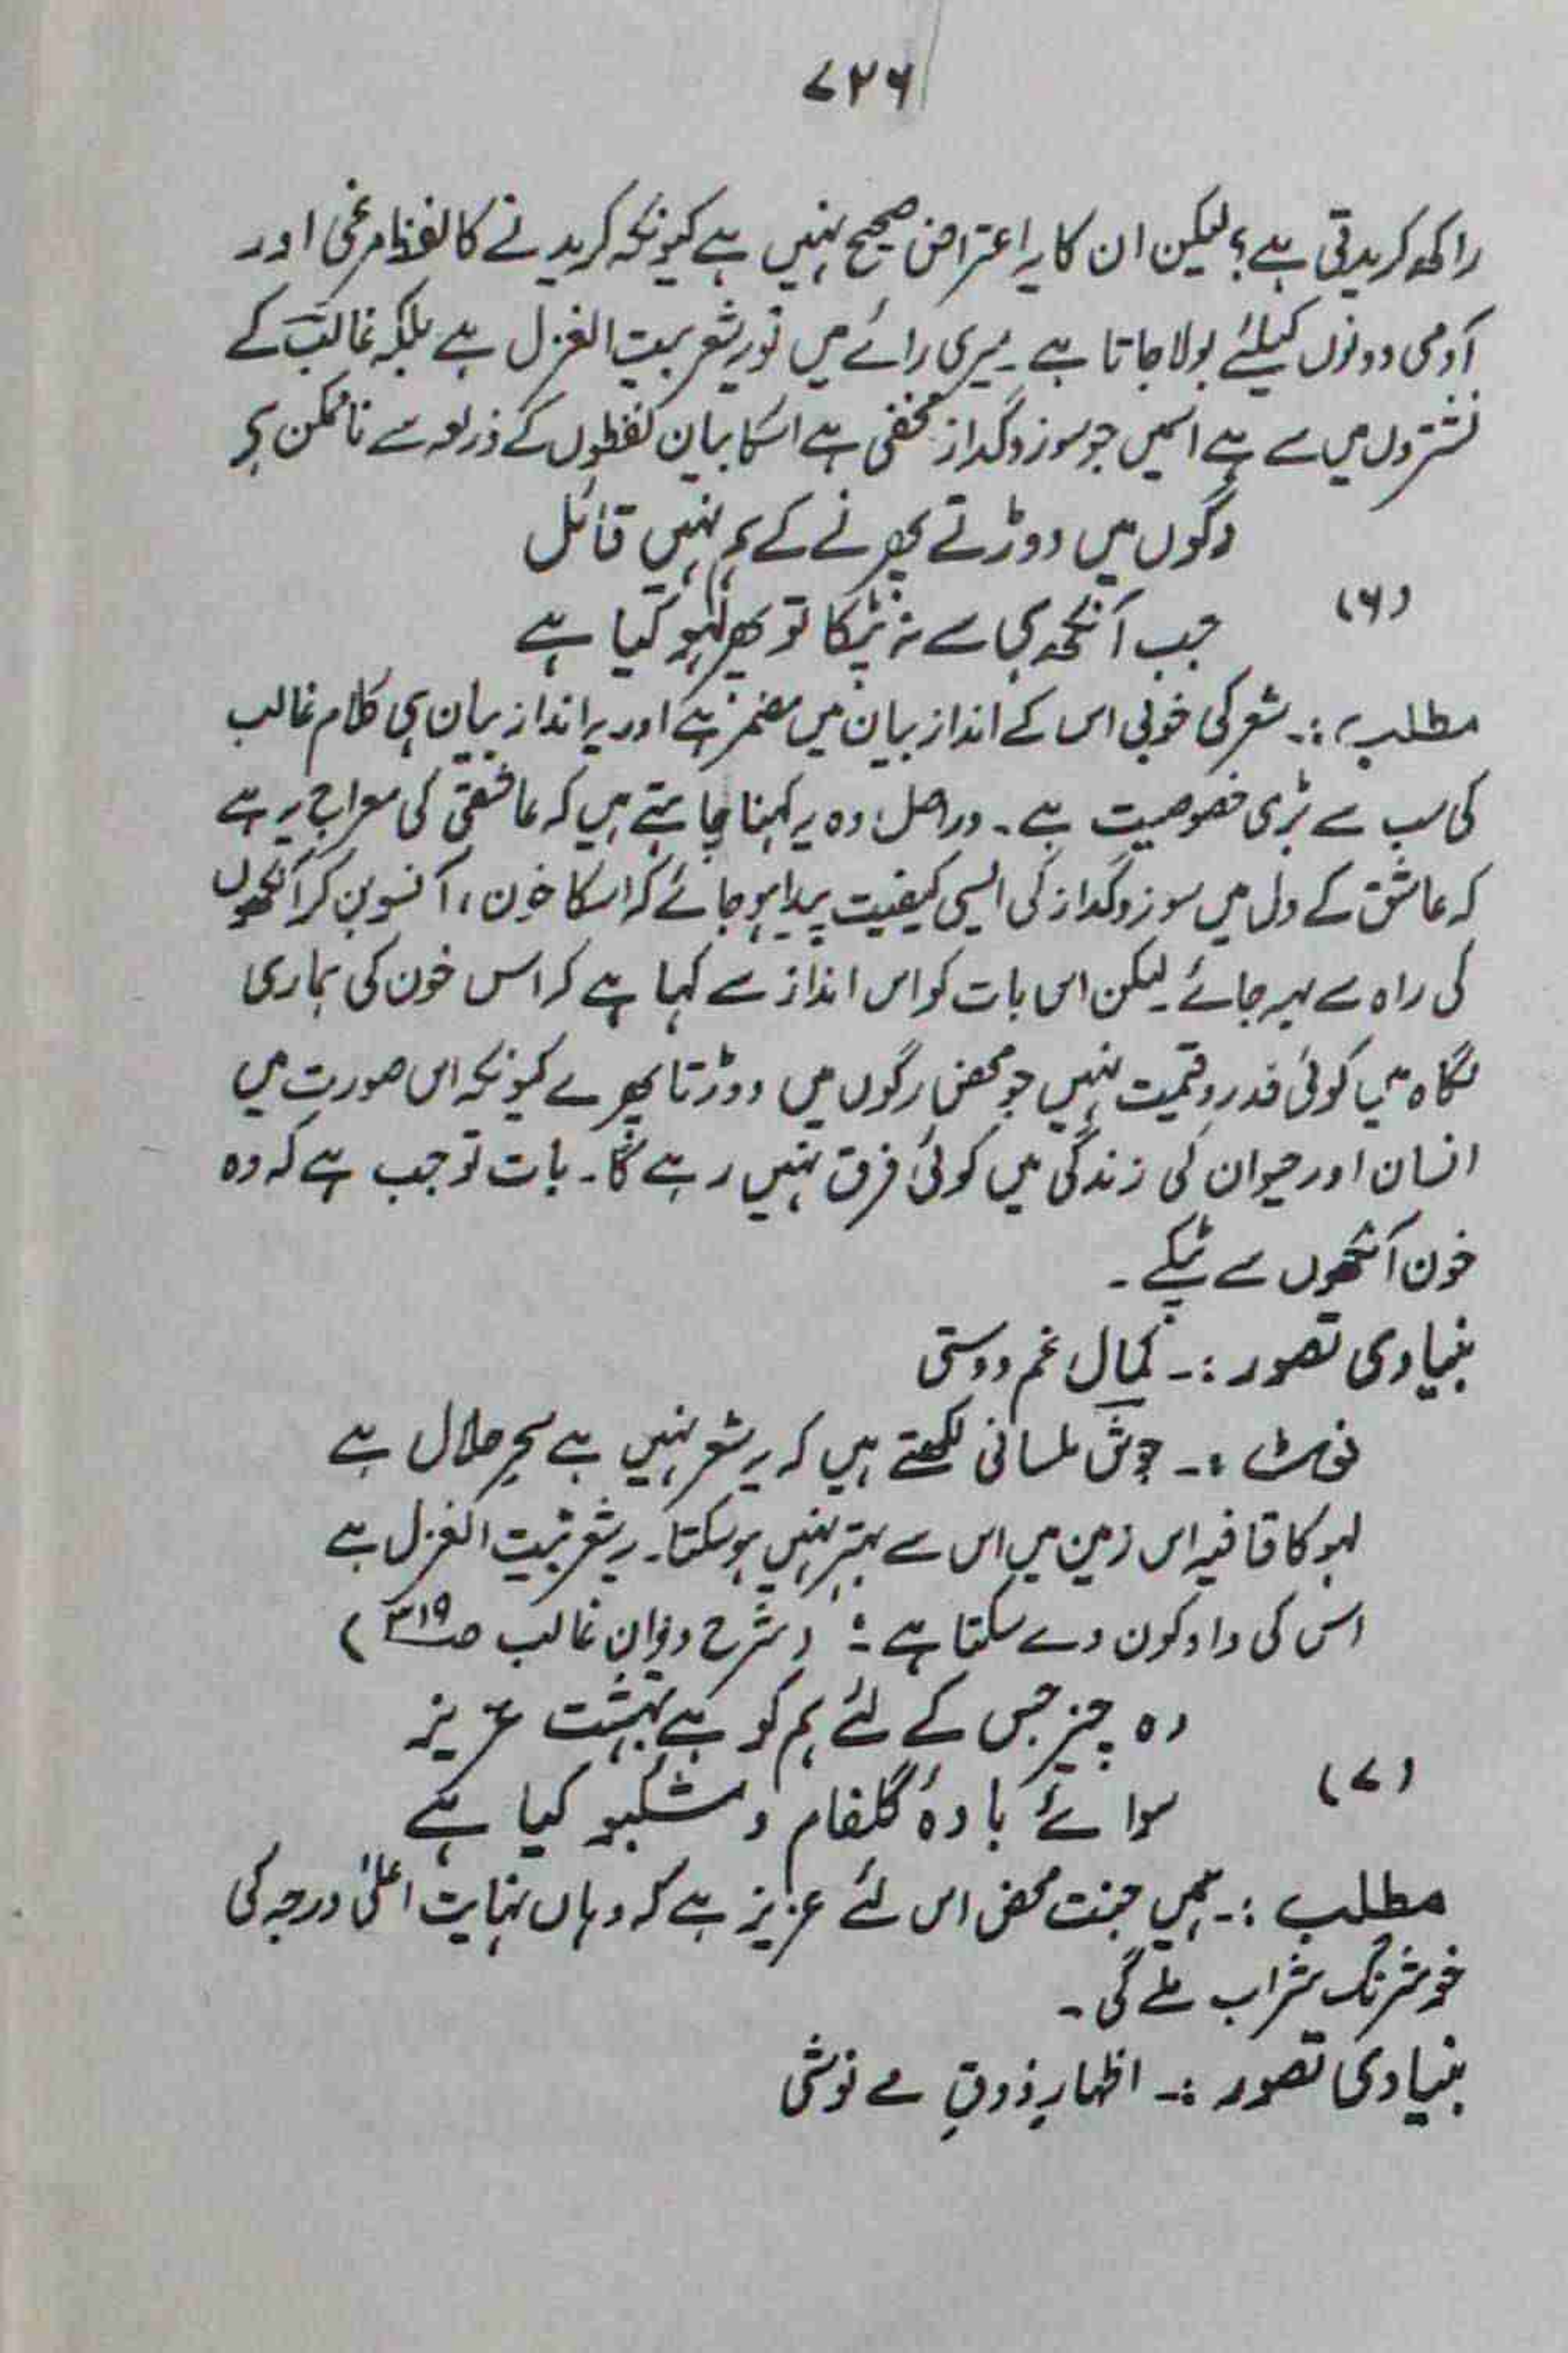 ۷۲۶
راکھ کریدتی ہے؟ لیکن ان کا یہ اعتراض صحیح نہیں ہے کیونکہ کریدنے کا لفظ مرغی اور
آدمی دونوں کیلئے بولا جاتا ہے۔ میری رائے میں تو یہ شعر بیت الغزل ہے بلکہ غالب کے
نشتروں میں سے ہے اسمیں جو سوز و گداز مخفی ہے اسکا بیان لفظوں کے ذریعہ سے ناممکن ہے
رگوں میں دوڑتے پھرنے کے ہم نہیں قائل
(۶)
جب آنکھ ہی سے نہ ٹپکا تو پھر لہو کیا ہے
مطلب :۔ شعر کی خوبی اس کے انداز بیان میں مضمر ہے اور یہ انداز بیان ہی کلام غالب
کی سب سے بڑی خصوصیت ہے۔ دراصل وہ یہ کہنا چاہتے ہیں کہ عاشقی کی معراج یہ ہے
کہ عاشق کے دل میں سوز و گداز کی ایسی کیفیت پیدا ہو جائے کہ اسکا خون، آنسو بن کر آنکھوں
کی راہ سے بہہ جائے۔ لیکن اس بات کو اس انداز سے کہا ہے کہ اس خون کی ہماری
نگاہ میں کوئی قدر و قیمت نہیں جو محض رگوں میں دوڑتا پھرے کیونکہ اس صورت میں
انسان اور حیوان کی زندگی میں کوئی فرق نہیں رہے گا۔ بات تو جب ہے کہ وہ
خون آنکھوں سے ٹپکے۔
بنیادی تصور :۔ کمال غم دوستی
نوٹ :۔ جوش ملسانی لکھتے ہیں کہ یہ شعر نہیں ہے سحرِ حلال ہے
لہو کا قافیہ اس زمین میں اس سے بہتر نہیں ہو سکتا۔ یہ شعر بیت الغزل ہے
اس کی داد کون دے سکتا ہے : (شرح دیوانِ غالب ص۳۱۹)
وہ چیز جس کے لئے ہم کو ہے بہشت عزیز
(۷)
سوائے بادۂ گلفام و مشکبو کیا ہے
مطلب :۔ ہمیں جنت محض اس لئے عزیز ہے کہ وہاں نہایت اعلیٰ درجہ کی
خوشرنگ شراب ملے گی۔
بنیادی تصور :۔ اظہارِ ذوقِ مے نوشی